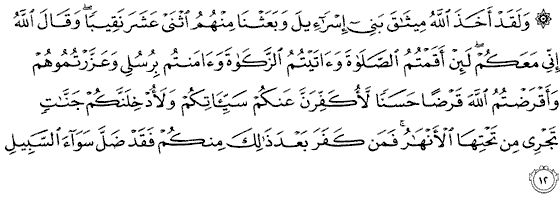 ۞ وَلَقَدْ أَخَذَ ٱللَّهُ مِيثَٰقَ بَنِىٓ إِسْرَٰٓءِيلَ وَبَعَثْنَا مِنْهُمُ ٱثْنَىْ عَشَرَ نَقِيبًا ۖ وَقَالَ ٱللَّهُ
إِنِّى مَعَكُمْ ۖ لَئِنْ أَقَمْتُمُ ٱلصَّلَوٰةَ وَءَاتَيْتُمُ ٱلزَّكَوٰةَ وَءَامَنتُم بِرُسُلِى وَعَزَّرْتُمُوهُمْ
وَأَقْرَضْتُمُ ٱللَّهَ قَرْضًا حَسَنًا لَّأُكَفِّرَنَّ عَنكُمْ سَيِّـَٔاتِكُمْ وَلَأُدْخِلَنَّكُمْ جَنَّٰتٍ
تَجْرِى مِن تَحْتِهَا ٱلْأَنْهَٰرُ ۚ فَمَن كَفَرَ بَعْدَ ذَٰلِكَ مِنكُمْ فَقَدْ ضَلَّ سَوَآءَ ٱلسَّبِيلِ
١٢